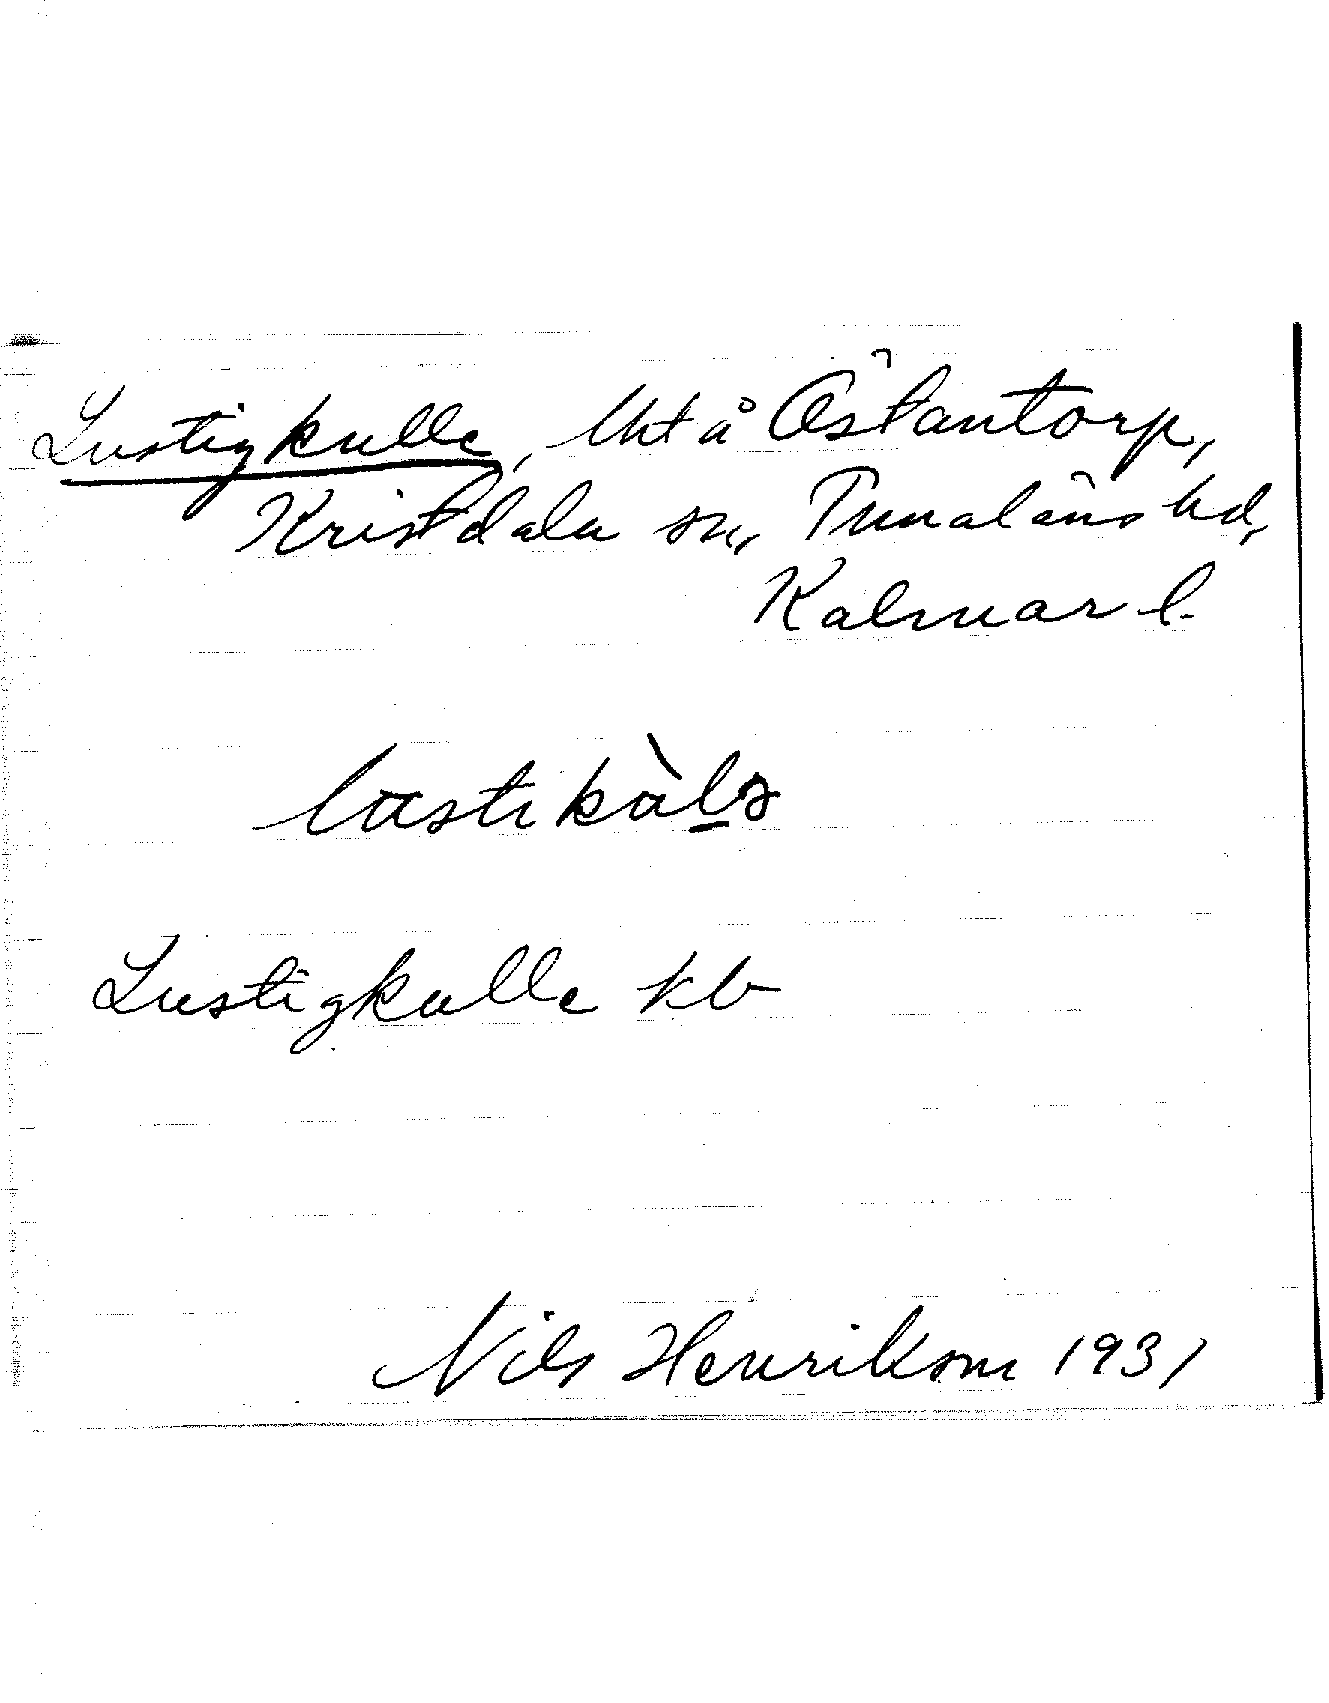 Lustigkulle, lht å Östantorp,
Kristdala sn, Tunaläns hd,
Kalmar l.
Lustigkulle kb
Nils Henrikson 1931